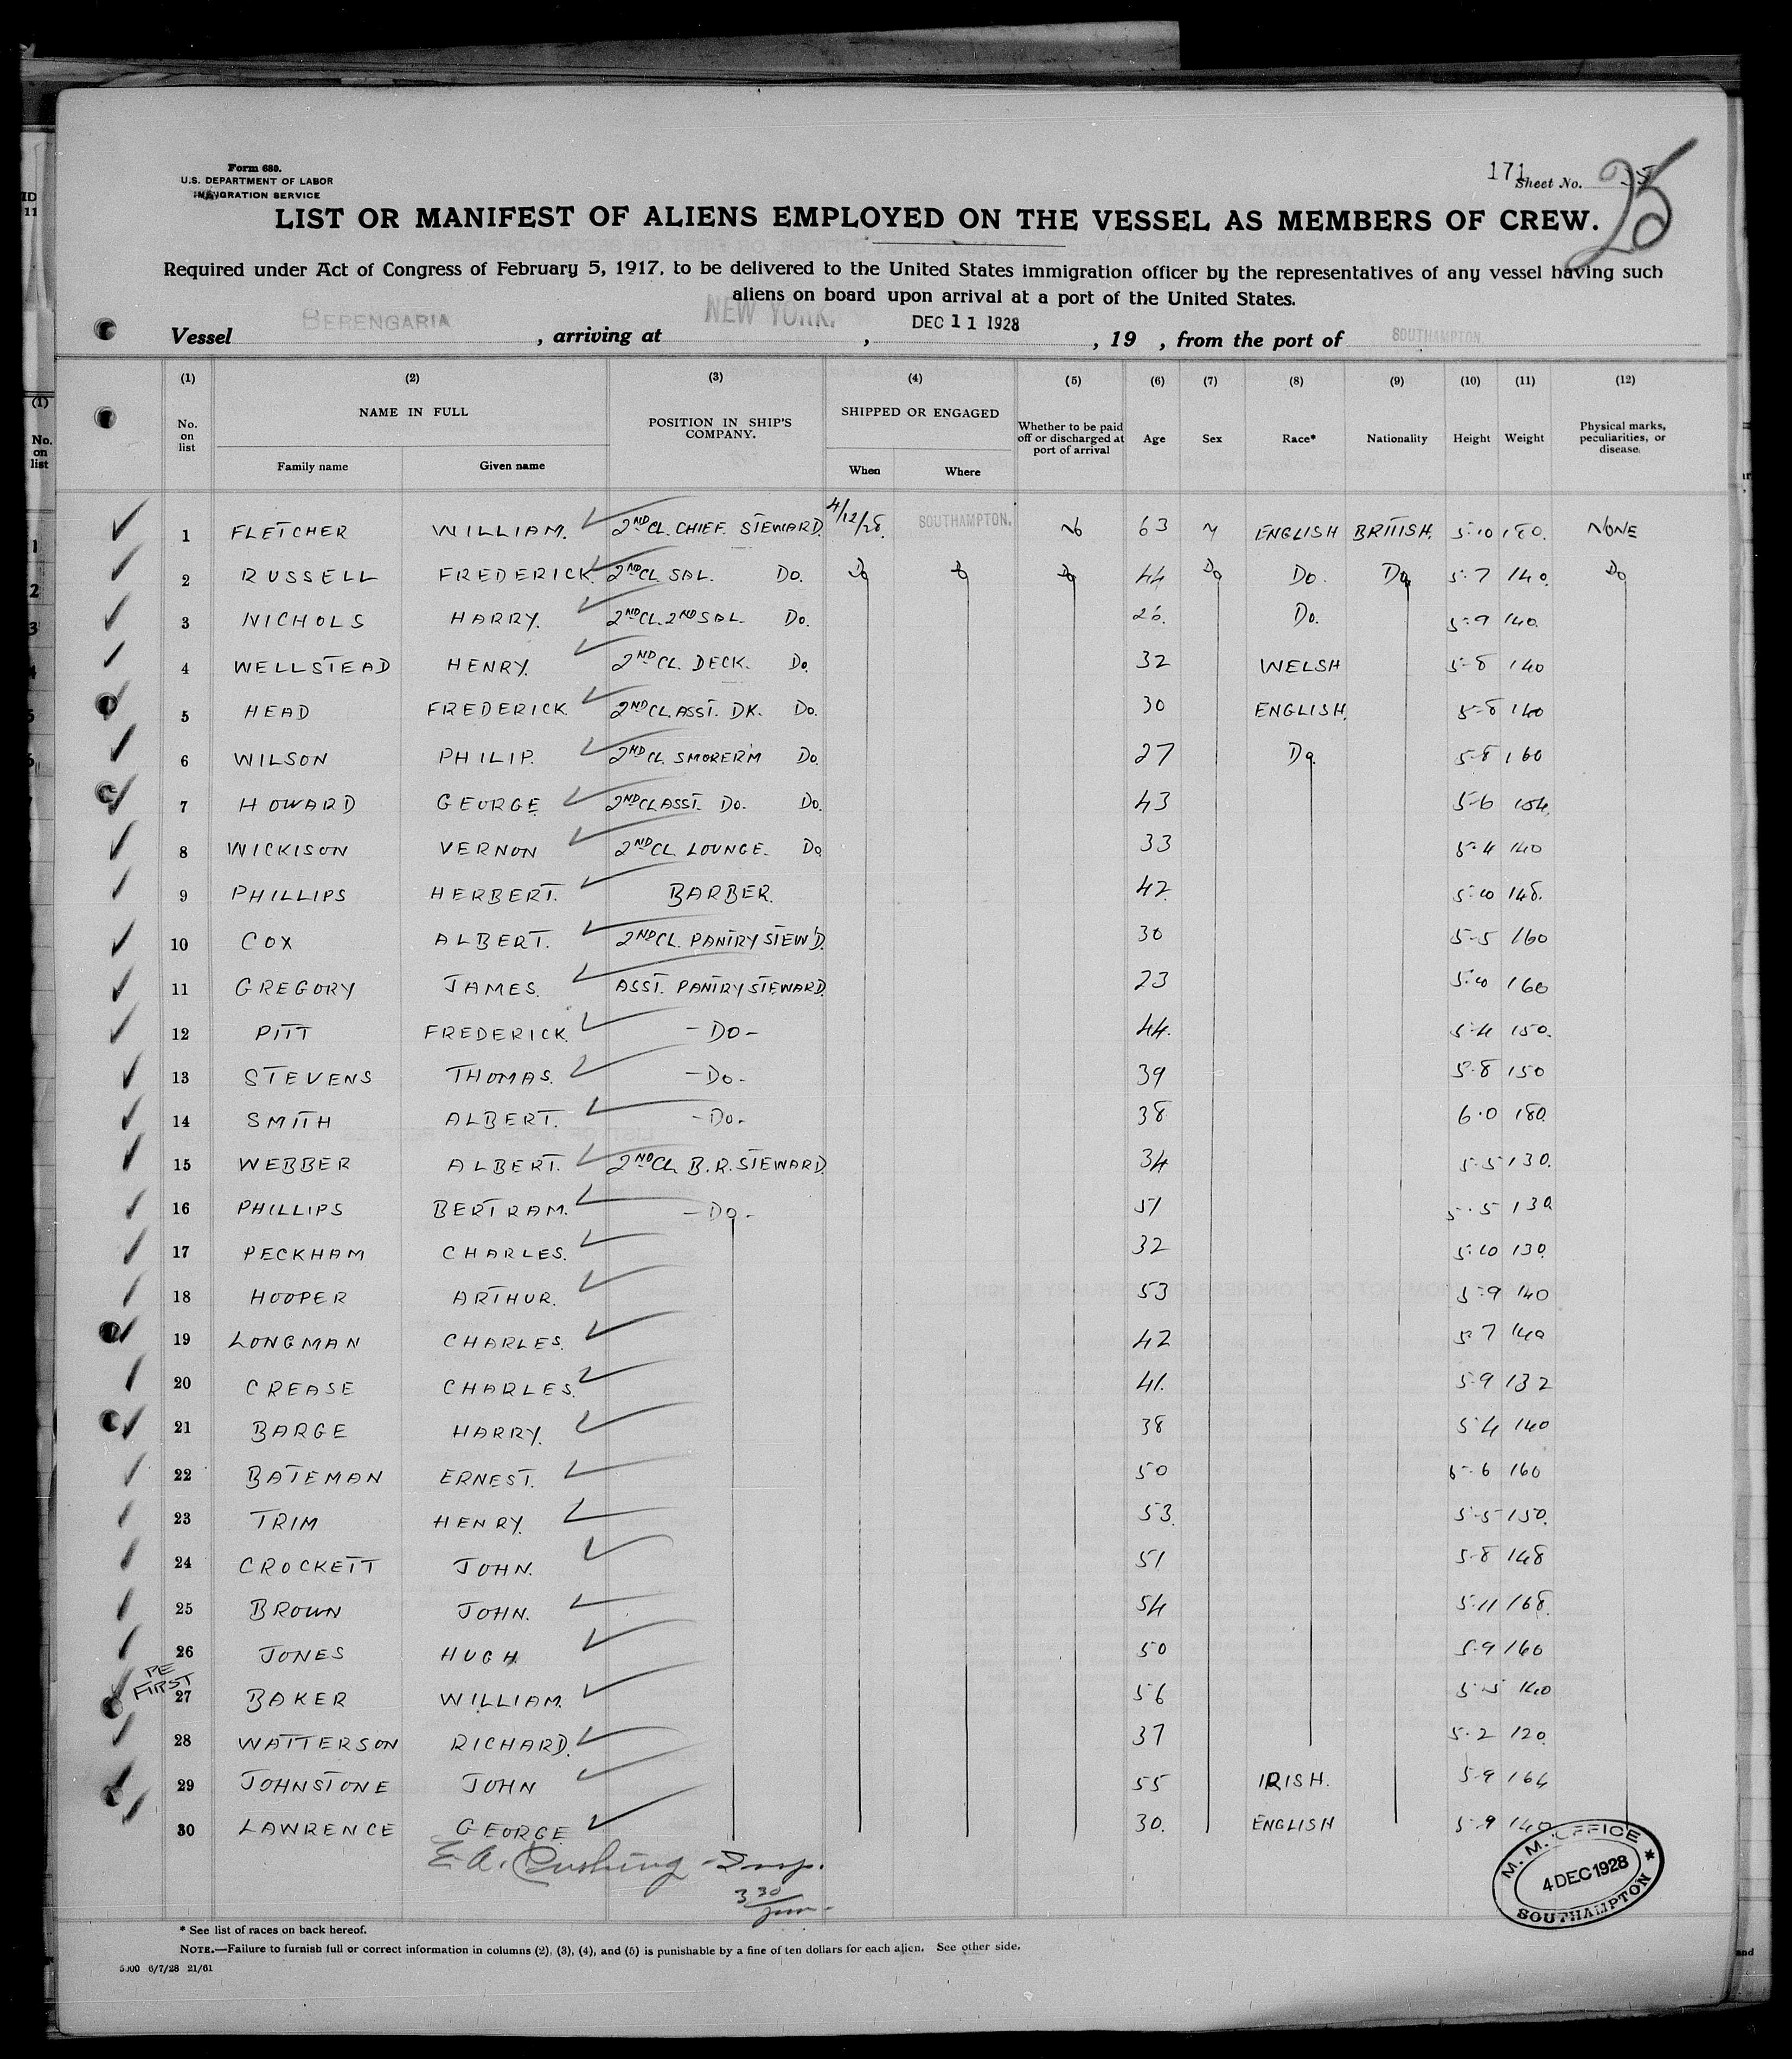 Form 680.
U.S. DEPARTMENT OF LABOR
IMMIGRATION SERVICE
171 Sheet No. 25
LIST OR MANIFEST OF ALIENS EMPLOYED ON THE VESSEL AS MEMBERS OF CREW.
Required under Act of Congress of February 5, 1917, to be delivered to the United States immigration officer by the representatives of any vessel having such
aliens on board upon arrival at a port of the United States.
Vessel BERENGARIA, arriving at NEW YORK., DEC 11 1928, 19 , from the port of SOUTHAMPTON.
(1) (2) (3) (4) (5) (6) (7) (8) (9) (10) (11) (12)
No. on list NAME IN FULL Family name Given name POSITION IN SHIP'S COMPANY. SHIPPED OR ENGAGED When Where Whether to be paid off or discharged at port of arrival Age Sex Race* Nationality Height Weight Physical marks, peculiarities, or disease.
1 FLETCHER WILLIAM. 2ND CL. CHIEF. STEWARD. 4/12/28. SOUTHAMPTON. No 63 M ENGLISH BRITISH. 5.10 180. NONE
2 RUSSELL FREDERICK. 2ND CL SAL. Do. Do Do Do 44 Do Do. Do 5.7 140. Do
3 NICHOLS HARRY. 2ND CL. 2ND SAL. Do. 26. Do. 5.9 140.
4 WELLSTEAD HENRY. 2ND CL. DECK. Do. 32 WELSH 5-8 140
5 HEAD FREDERICK. 2ND CL. ASST. DK. Do. 30 ENGLISH. 5-8 140
6 WILSON PHILIP. 2ND CL. SMORER'M Do. 27 Do. 5-8 160
7 HOWARD GEORGE 2ND CL ASST. Do. Do. 43 5-6 154.
8 WICKISON VERNON 2ND CL. LOUNGE. Do 33 5.4 140
9 PHILLIPS HERBERT. BARBER. 42. 5.10 148.
10 COX ALBERT. 2ND CL. PANTRY STEW'D. 30 5-5 160
11 GREGORY JAMES. ASST. PANTRY STEWARD. 23 5.10 160
12 PITT FREDERICK. - Do - 44. 5.4 150.
13 STEVENS THOMAS. - Do. - 39 5.8 150
14 SMITH ALBERT. - Do. - 38 6.0 180.
15 WEBBER ALBERT. 2ND CL. B.R. STEWARD. 34 5.5 130.
16 PHILLIPS BERTRAM. - Do - 51 5.5 130
17 PECKHAM CHARLES. 32 5.10 130.
18 HOOPER ARTHUR. 53 5.9 140
19 LONGMAN CHARLES. 42 5.7 140
20 CREASE CHARLES. 41. 5.9 132
21 BARGE HARRY. 38 5.4 140
22 BATEMAN ERNEST. 50 5.6 160
23 TRIM HENRY. 53. 5.5 150.
24 CROCKETT JOHN. 51 5.8 148
25 BROWN JOHN. 54 5.11 168.
26 JONES HUGH. 50 5.9 160
PE FIRST
27 BAKER WILLIAM. 56 5.5 140
28 WATTERSON RICHARD. 37 5.2 120.
29 JOHNSTONE JOHN 55 IRISH. 5.9 164
30 LAWRENCE GEORGE 30. ENGLISH 5.9 140
E.A. Cushing - Insp.
3 30
M. M. OFFICE
4 DEC 1928
SOUTHAMPTON *
* See list of races on back hereof.
NOTE.—Failure to furnish full or correct information in columns (2), (3), (4), and (5) is punishable by a fine of ten dollars for each alien. See other side.
5000 6/7/28 21/61